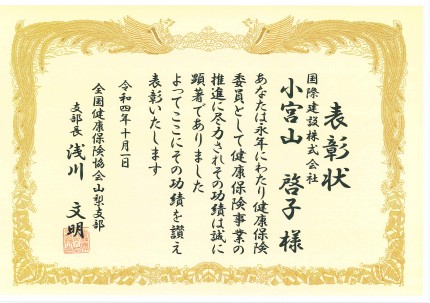 表彰状
国際建設株式会社
小宮山 啓子 様
あなたは永年にわたり健康保険
委員として健康保険事業の
推進に尽力されその功績は誠に
顕著でありました
よってここにその功績を讃え
表彰いたします
令和四年十月一日
全国健康保険協会山梨支部
支部長 浅川 文明